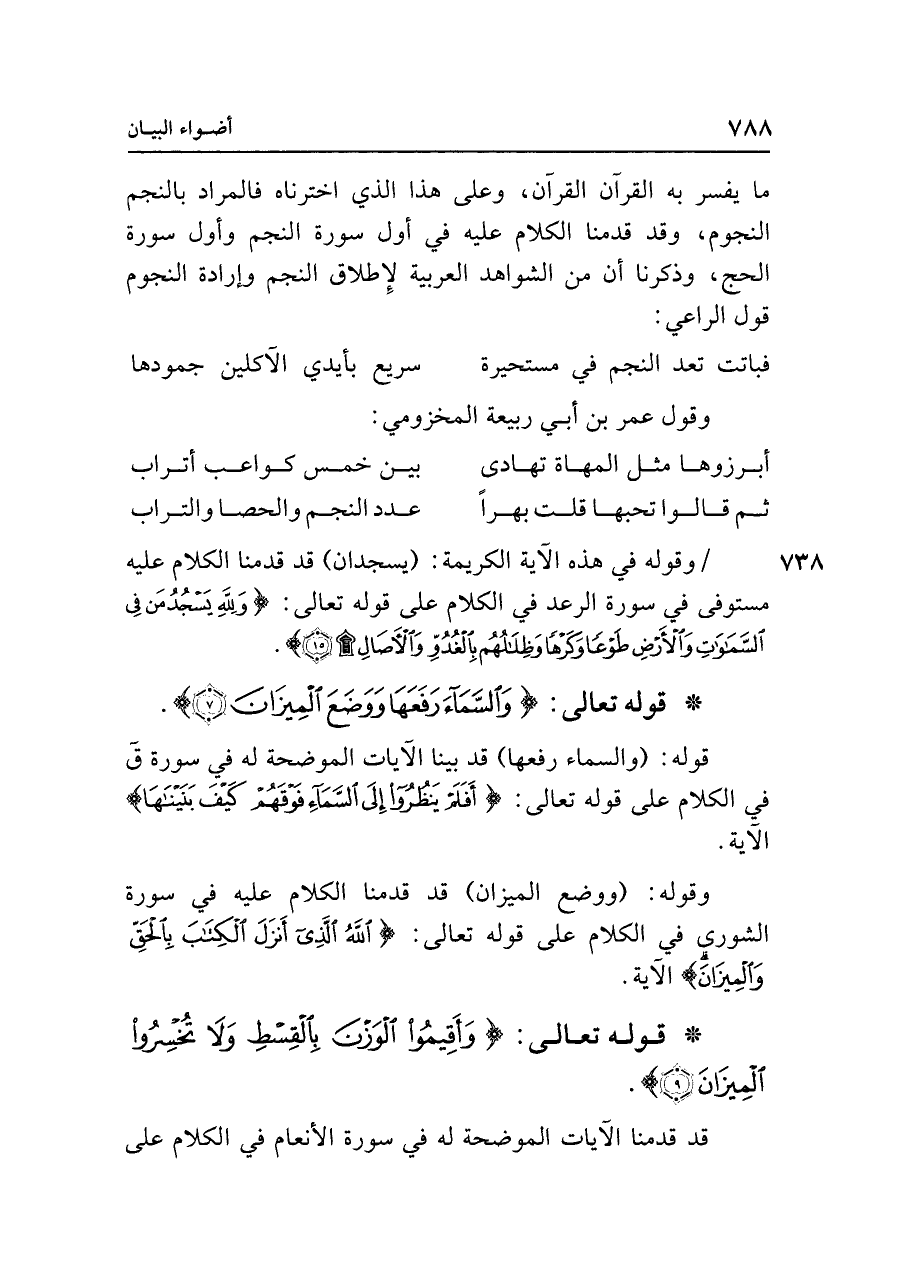 ٧٨٨ أضـواء البيـان
ما يفسر به القرآن القرآن، وعلى هذا الذي اخترناه فالمراد بالنجم
النجوم، وقد قدمنا الكلام عليه في أول سورة النجم وأول سورة
الحج، وذكرنا أن من الشواهد العربية لإِطلاق النجم وإرادة النجوم
قول الراعي:
فباتت تعد النجم في مستحيرة سريع بأيدي الآكلين جمودها
وقول عمر بن أبـي ربيعة المخزومي:
أبـرزوهـا مثـل المهـاة تهـادى بيـن خمـس كـواعـب أتـراب
ثـم قـالـوا تحبهـا قلـت بهـراً عـدد النجـم والحصـا والتـراب
٧٣٨ /وقوله في هذه الآية الكريمة: (يسجدان) قد قدمنا الكلام عليه
مستوفى في سورة الرعد في الكلام على قوله تعالى: ﴿وَلِلَّهِ يَسْجُدُ مَن فِى
ٱلسَّمَٰوَٰتِ وَٱلْأَرْضِ طَوْعًا وَكَرْهًا وَظِلَٰلُهُم بِٱلْغُدُوِّ وَٱلْءَاصَالِ ۩ ١٥﴾.
* قوله تعالى: ﴿وَٱلسَّمَآءَ رَفَعَهَا وَوَضَعَ ٱلْمِيزَانَ ٧﴾.
قوله: (والسماء رفعها) قد بينا الآيات الموضحة له في سورة قٓ
في الكلام على قوله تعالى: ﴿أَفَلَمْ يَنظُرُوٓا۟ إِلَى ٱلسَّمَآءِ فَوْقَهُمْ كَيْفَ بَنَيْنَٰهَا﴾
الآية.
وقوله: (ووضع الميزان) قد قدمنا الكلام عليه في سورة
الشوري في الكلام على قوله تعالى: ﴿ٱللَّهُ ٱلَّذِىٓ أَنزَلَ ٱلْكِتَٰبَ بِٱلْحَقِّ
وَٱلْمِيزَانَۗ﴾ الآية.
* قـولـه تعـالـى: ﴿وَأَقِيمُوا۟ ٱلْوَزْنَ بِٱلْقِسْطِ وَلَا تُخْسِرُوا۟
ٱلْمِيزَانَ ٩﴾.
قد قدمنا الآيات الموضحة له في سورة الأنعام في الكلام على